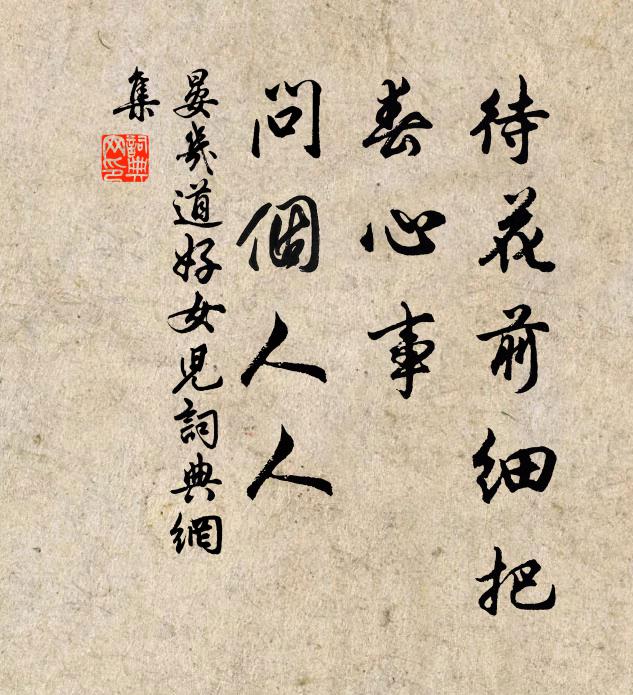 待花前細把
春心事
問個人人
晏幾道好女兒詞典網
集
詞典網印